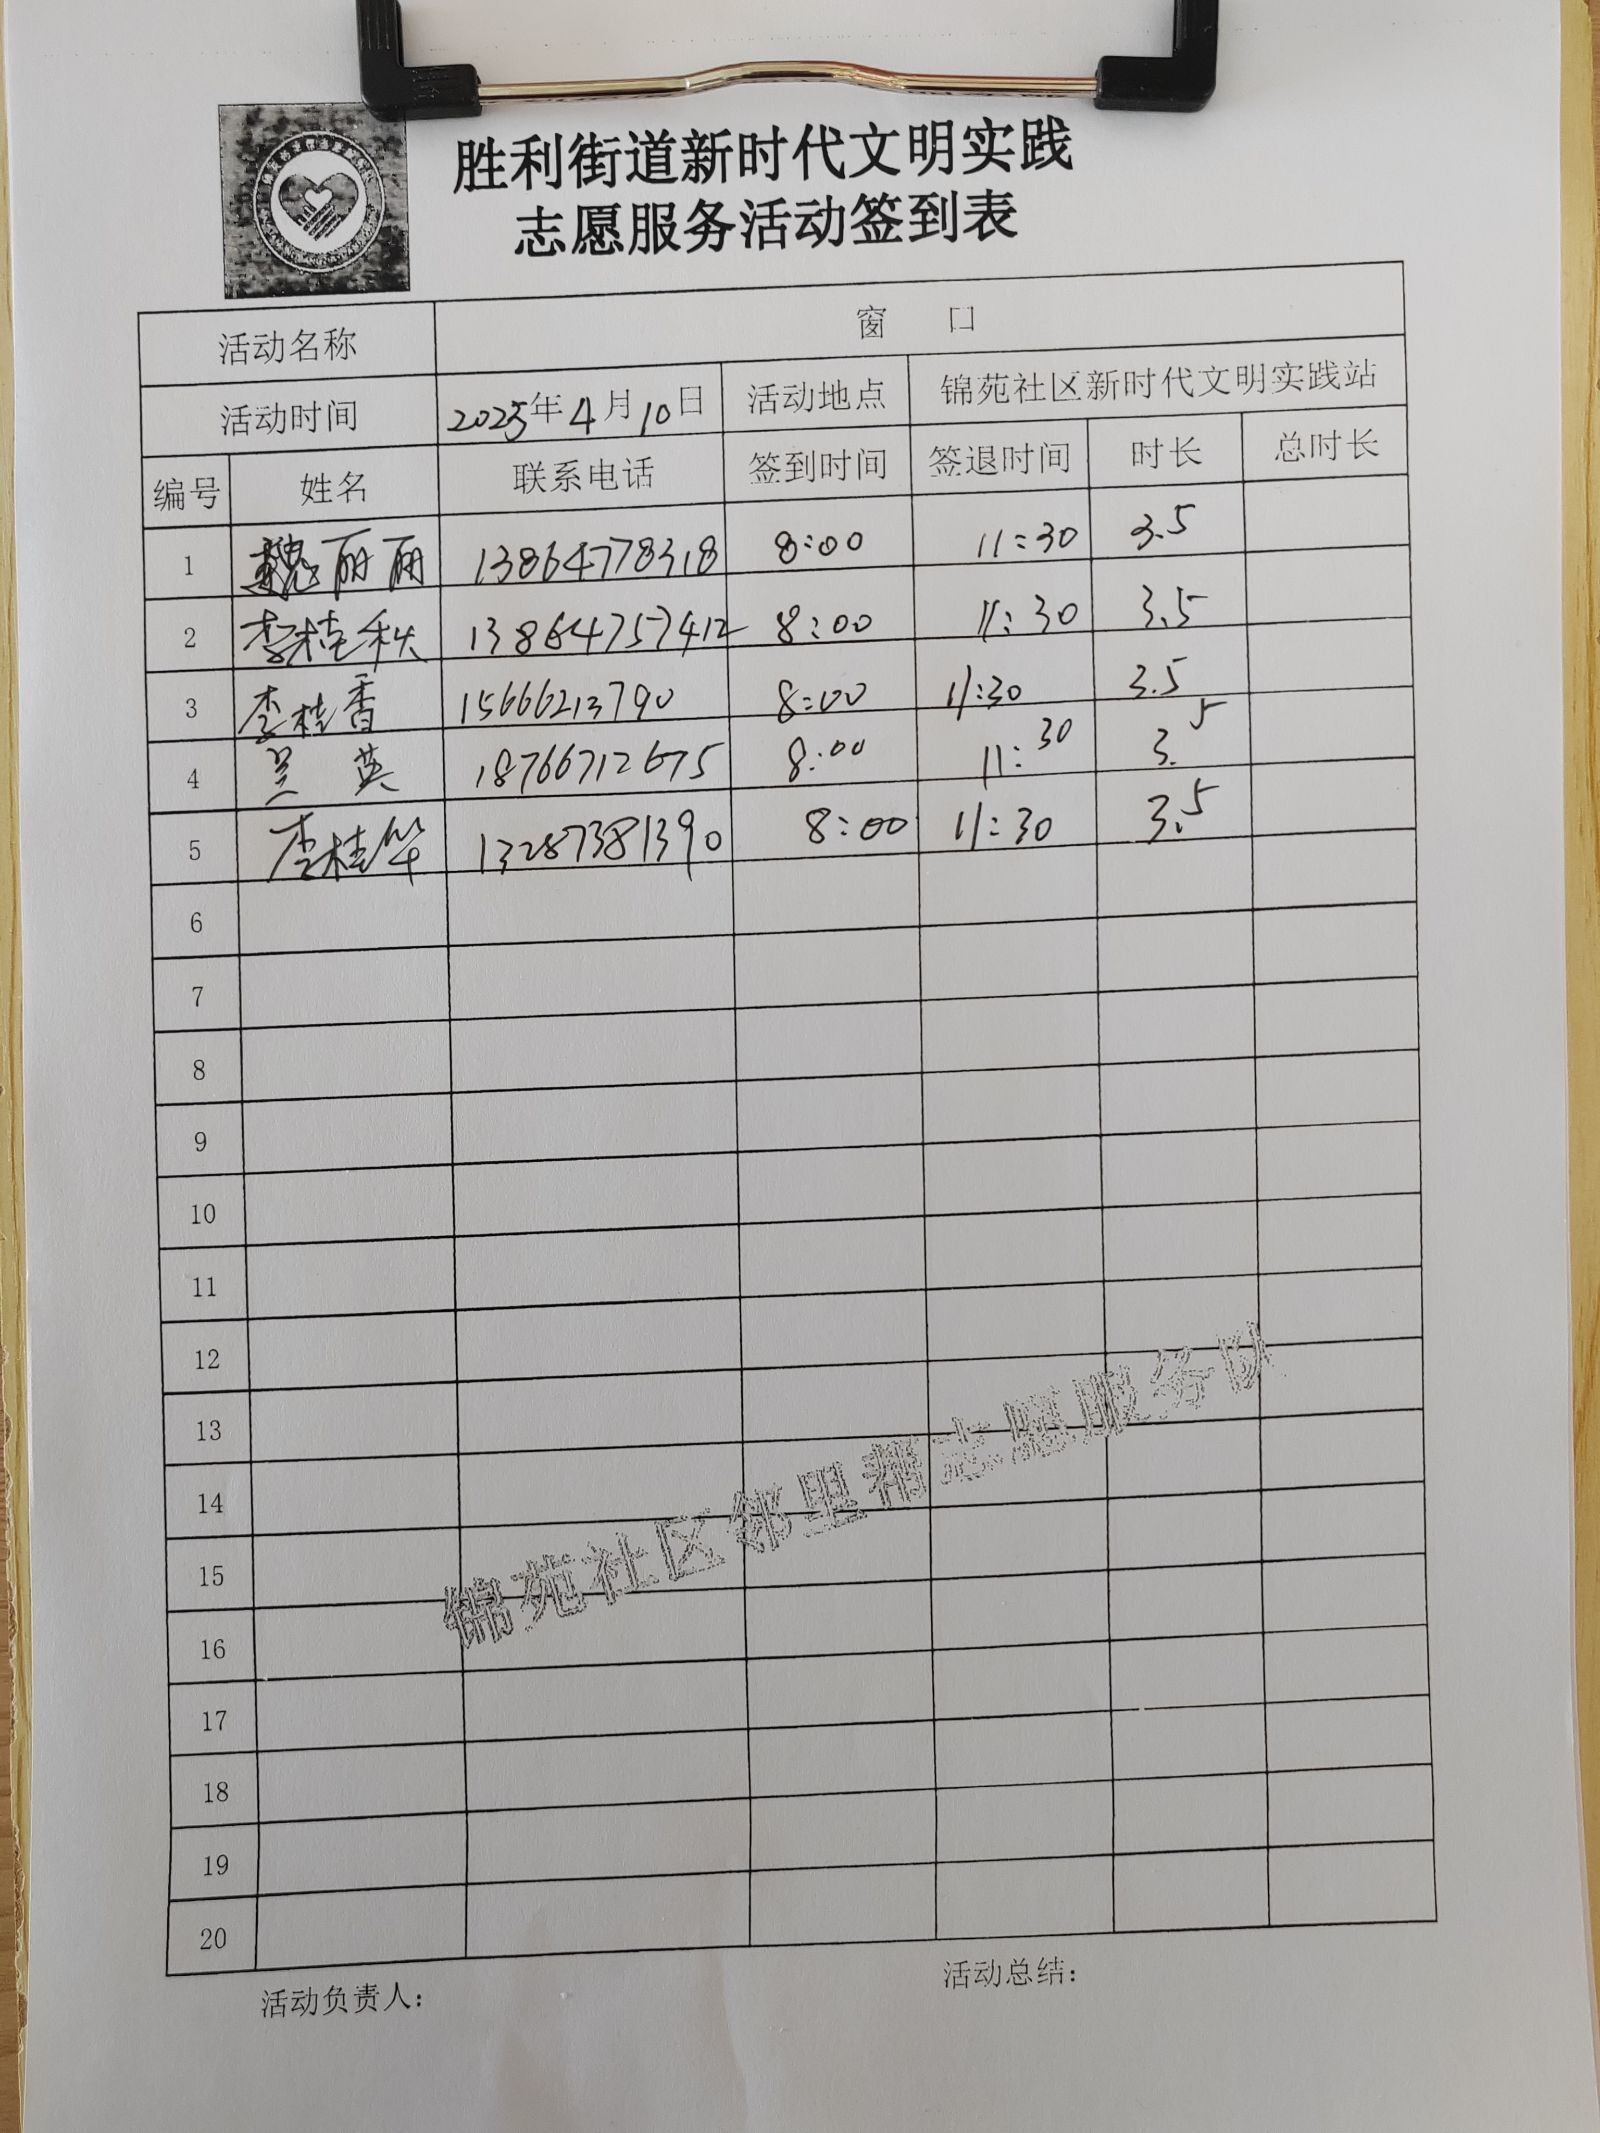 胜利街道新时代文明实践
志愿服务活动签到表
活动名称 窗 口
活动时间 2025年4月10日 活动地点 锦苑社区新时代文明实践站
编号 姓名 联系电话 签到时间 签退时间 时长 总时长
1 魏丽丽 13864778318 8:00 11:30 3.5
2 李桂秋 13864757412 8:00 11:30 3.5
3 李桂香 15666213790 8:00 11:30 3.5
4 兰英 18766712675 8:00 11:30 3.5
5 李桂华 13287381390 8:00 11:30 3.5
6
7
8
9
10
11
12
13
14
15
16
17
18
19
20
锦苑社区邻里帮志愿服务队
活动负责人： 活动总结：